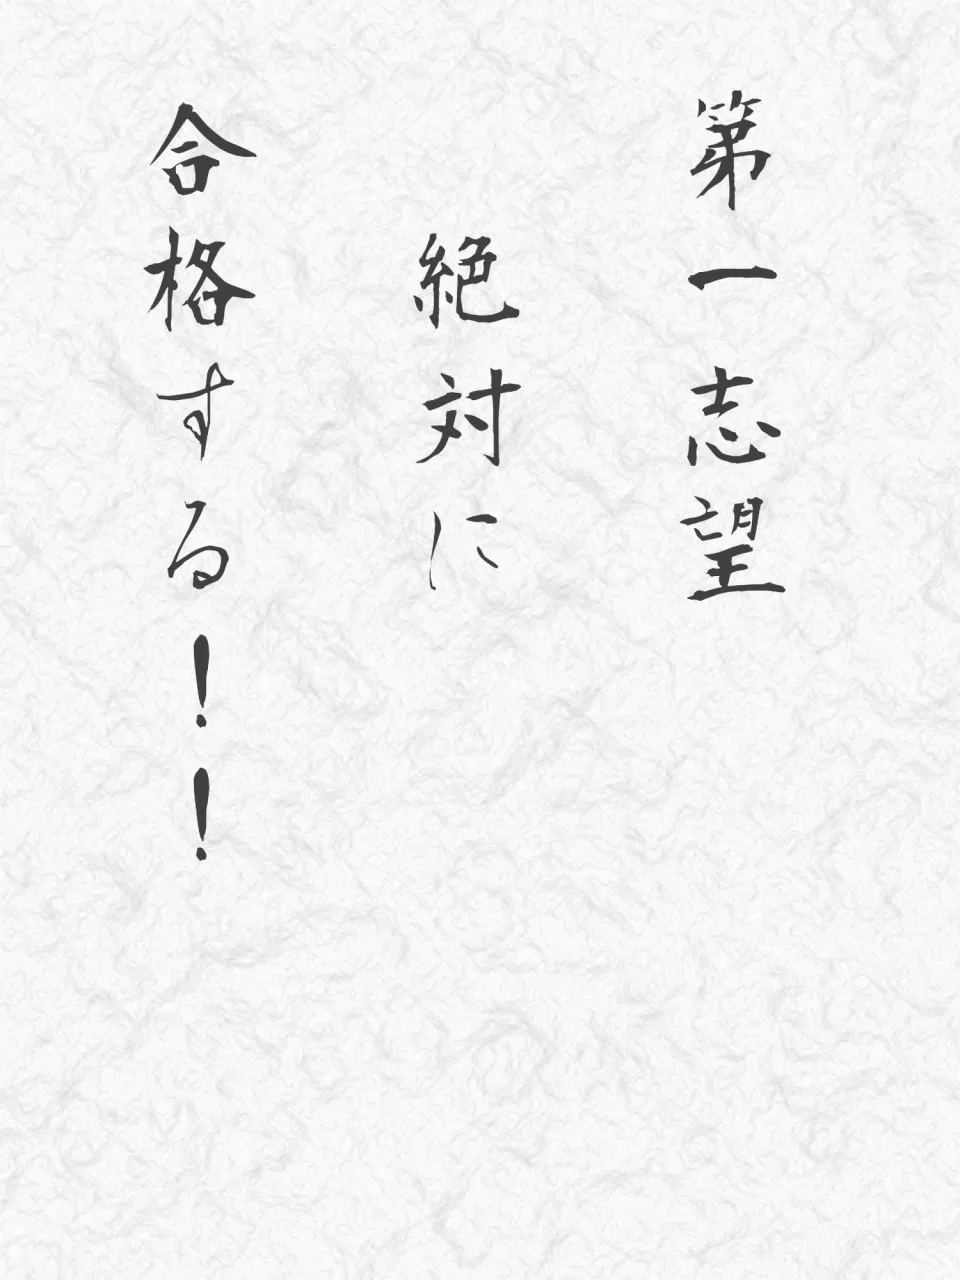 第一志望
絶対に
合格する！！